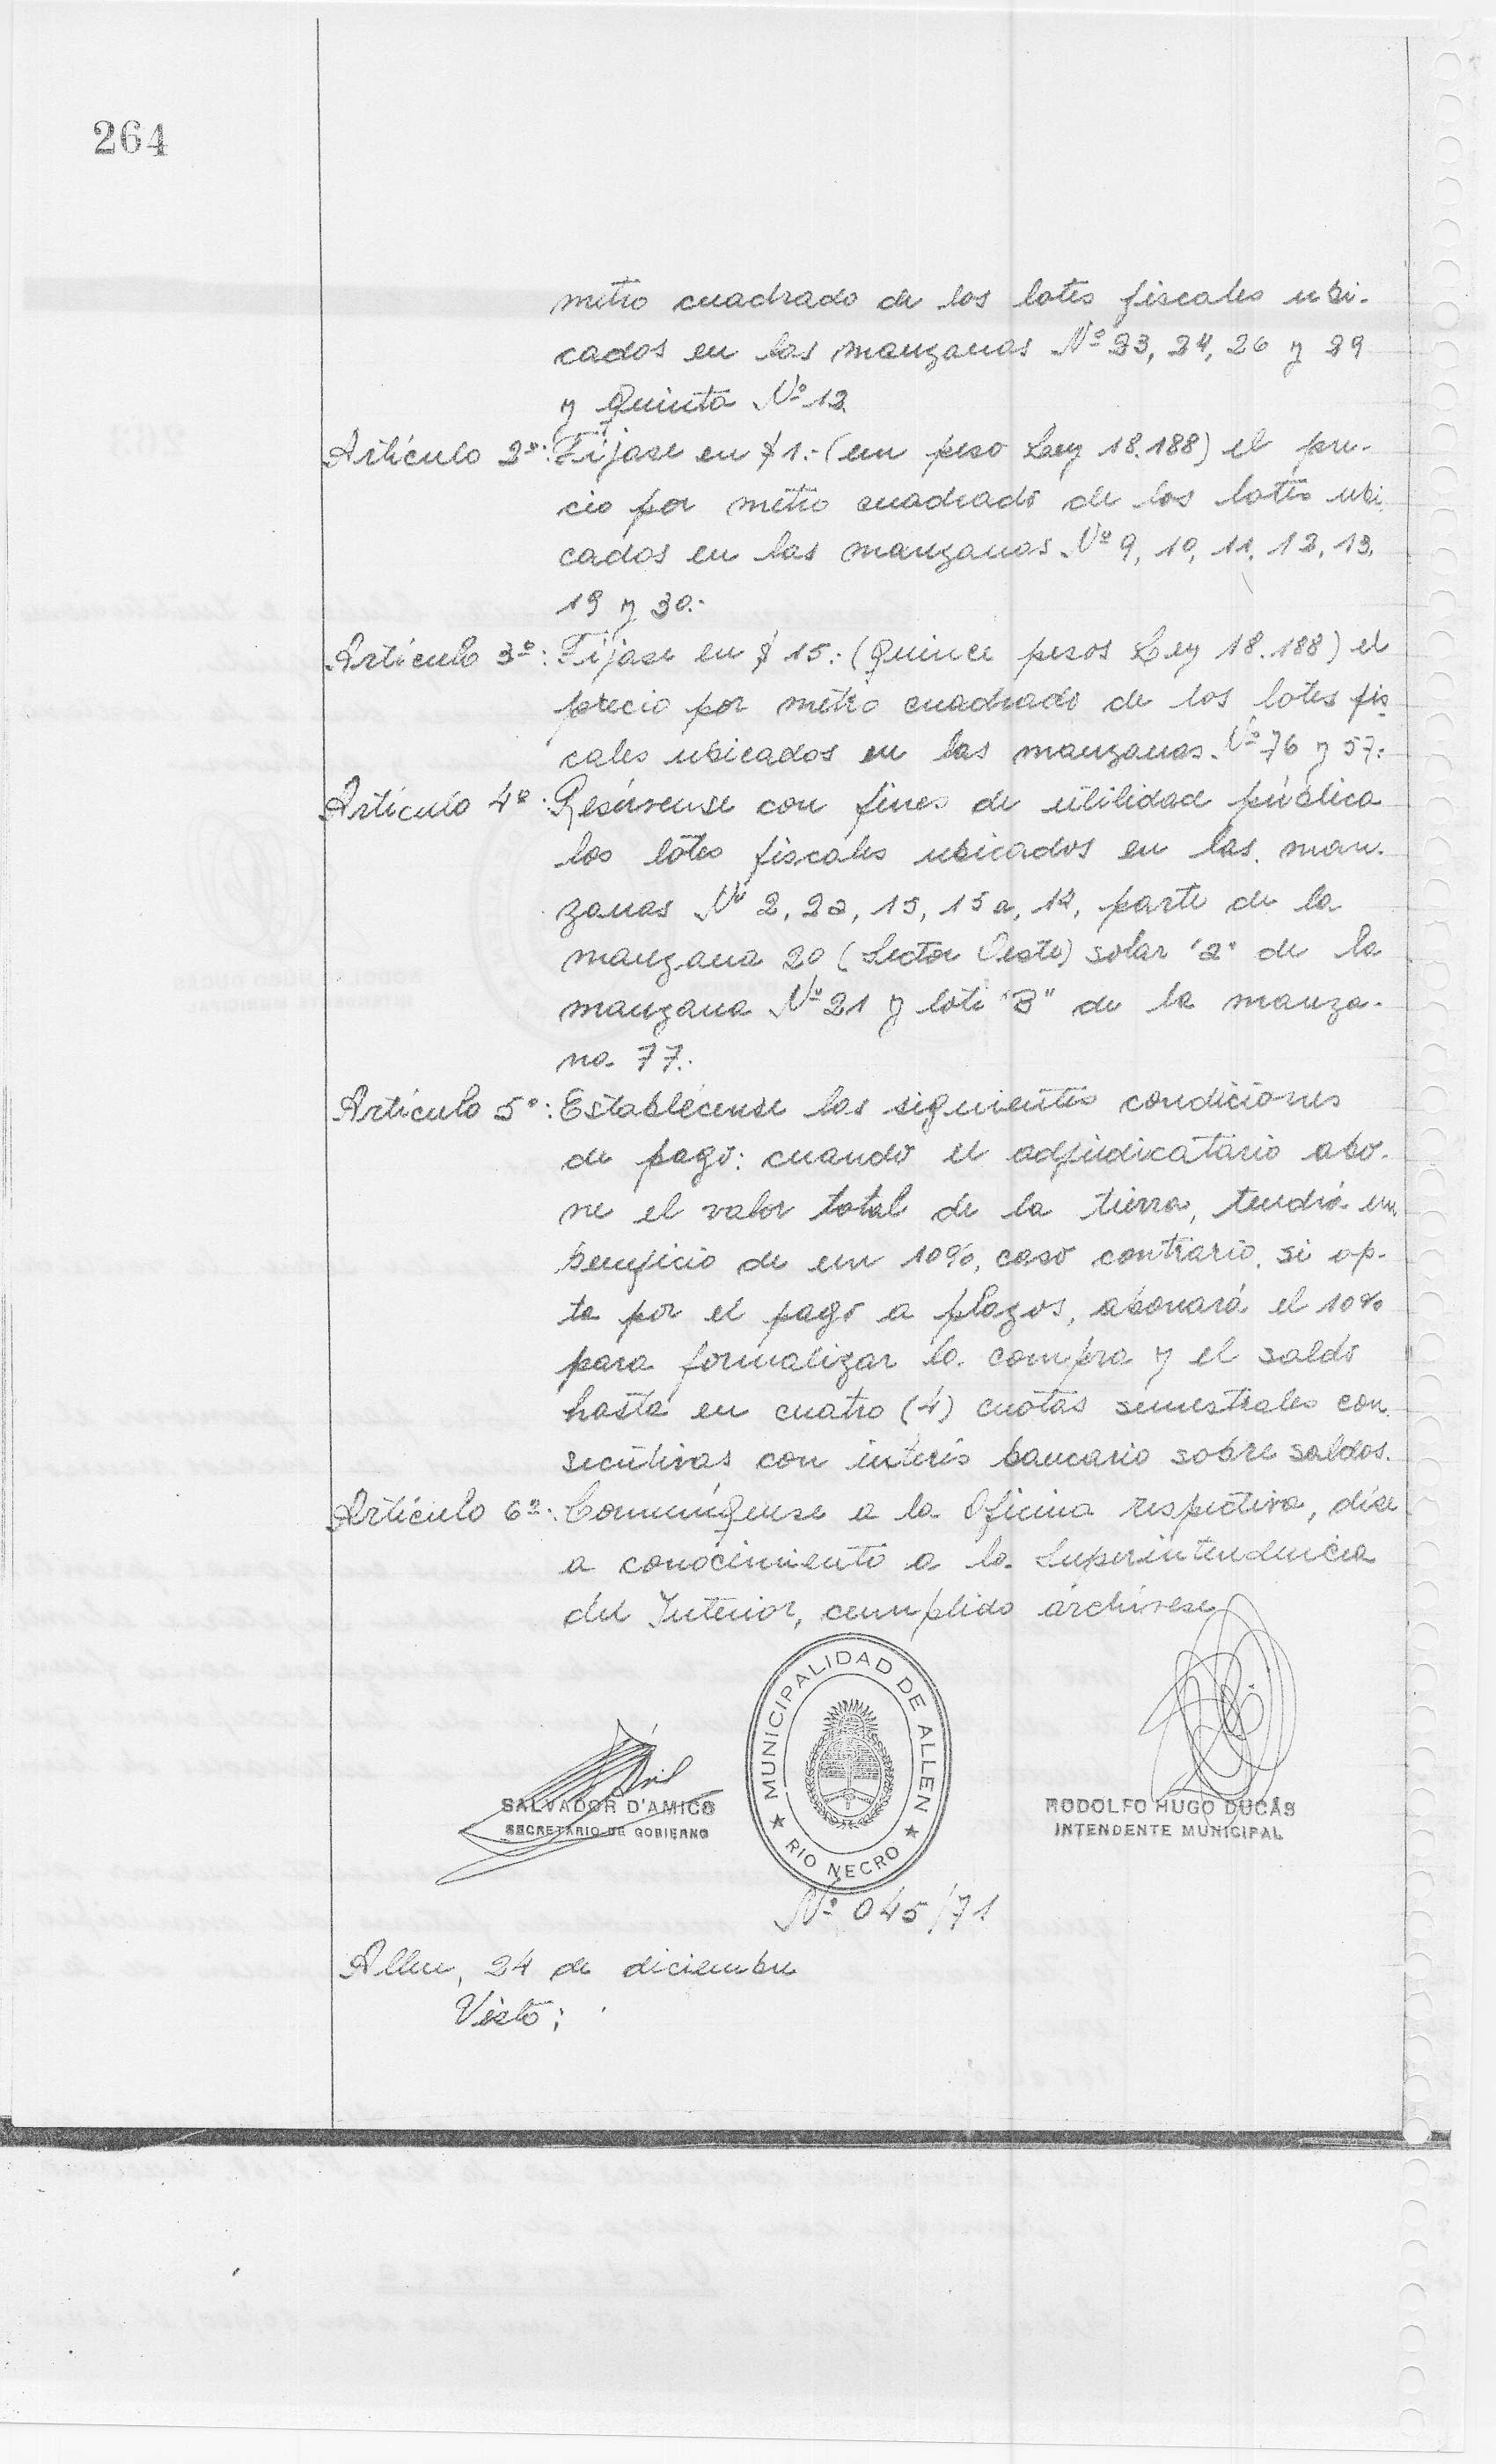 264
metro cuadrado de los lotes fiscales ubi-
cados en las manzanas Nº 23, 24, 26 y 29
y Quinta Nº 12.
Artículo 2º: Fíjase en $ 1.- (un peso Ley 18.188) el pre-
cio por metro cuadrado de los lotes ubi
cados en las manzanas Nº 9, 10, 11, 12, 13,
19 y 30.-
Artículo 3º: Fíjase en $ 15.- (Quince pesos Ley 18.188) el
precio por metro cuadrado de los lotes fis
cales ubicados en las manzanas Nº 76 y 57.-
Artículo 4º: Resérvense con fines de utilidad pública
los lotes fiscales ubicados en las man-
zanas Nº 2, 2a, 15, 15a, 12, parte de la
manzana 20 (Sector Oeste) solar "a" de la
manzana Nº 21 y lote "B" de la manza-
na 77.-
Artículo 5º: Establécense las siguientes condiciones
de pago: cuando el adjudicatario abo-
ne el valor total de la tierra, tendrá un
beneficio de un 10%, caso contrario, si op-
ta por el pago a plazos, abonará el 10%
para formalizar la compra y el saldo
hasta en cuatro (4) cuotas semestrales con
secutivas con interés bancario sobre saldos.
Artículo 6º: Comuníquese a la Oficina respectiva, dése
a conocimiento a la Superintendencia
del Interior, cumplido archívese
MUNICIPALIDAD DE ALLEN
RIO NEGRO
SALVADOR D'AMICO
SECRETARIO DE GOBIERNO
RODOLFO HUGO DUCÁS
INTENDENTE MUNICIPAL
Nº 045/71
Allen, 24 de diciembre
Visto: